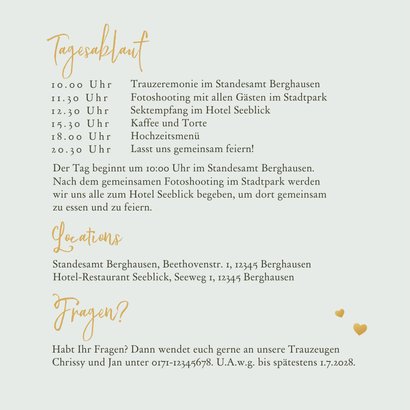 Tagesablauf
10.00 Uhr Trauzeremonie im Standesamt Berghausen
11.30 Uhr Fotoshooting mit allen Gästen im Stadtpark
12.30 Uhr Sektempfang im Hotel Seeblick
15.30 Uhr Kaffee und Torte
18.00 Uhr Hochzeitsmenü
20.30 Uhr Lasst uns gemeinsam feiern!
Der Tag beginnt um 10:00 Uhr im Standesamt Berghausen.
Nach dem gemeinsamen Fotoshooting im Stadtpark werden
wir uns alle zum Hotel Seeblick begeben, um dort gemeinsam
zu essen und zu feiern.
Locations
Standesamt Berghausen, Beethovenstr. 1, 12345 Berghausen
Hotel-Restaurant Seeblick, Seeweg 1, 12345 Berghausen
Fragen?
Habt Ihr Fragen? Dann wendet euch gerne an unsere Trauzeugen
Chrissy und Jan unter 0171-12345678. U.A.w.g. bis spätestens 1.7.2028.